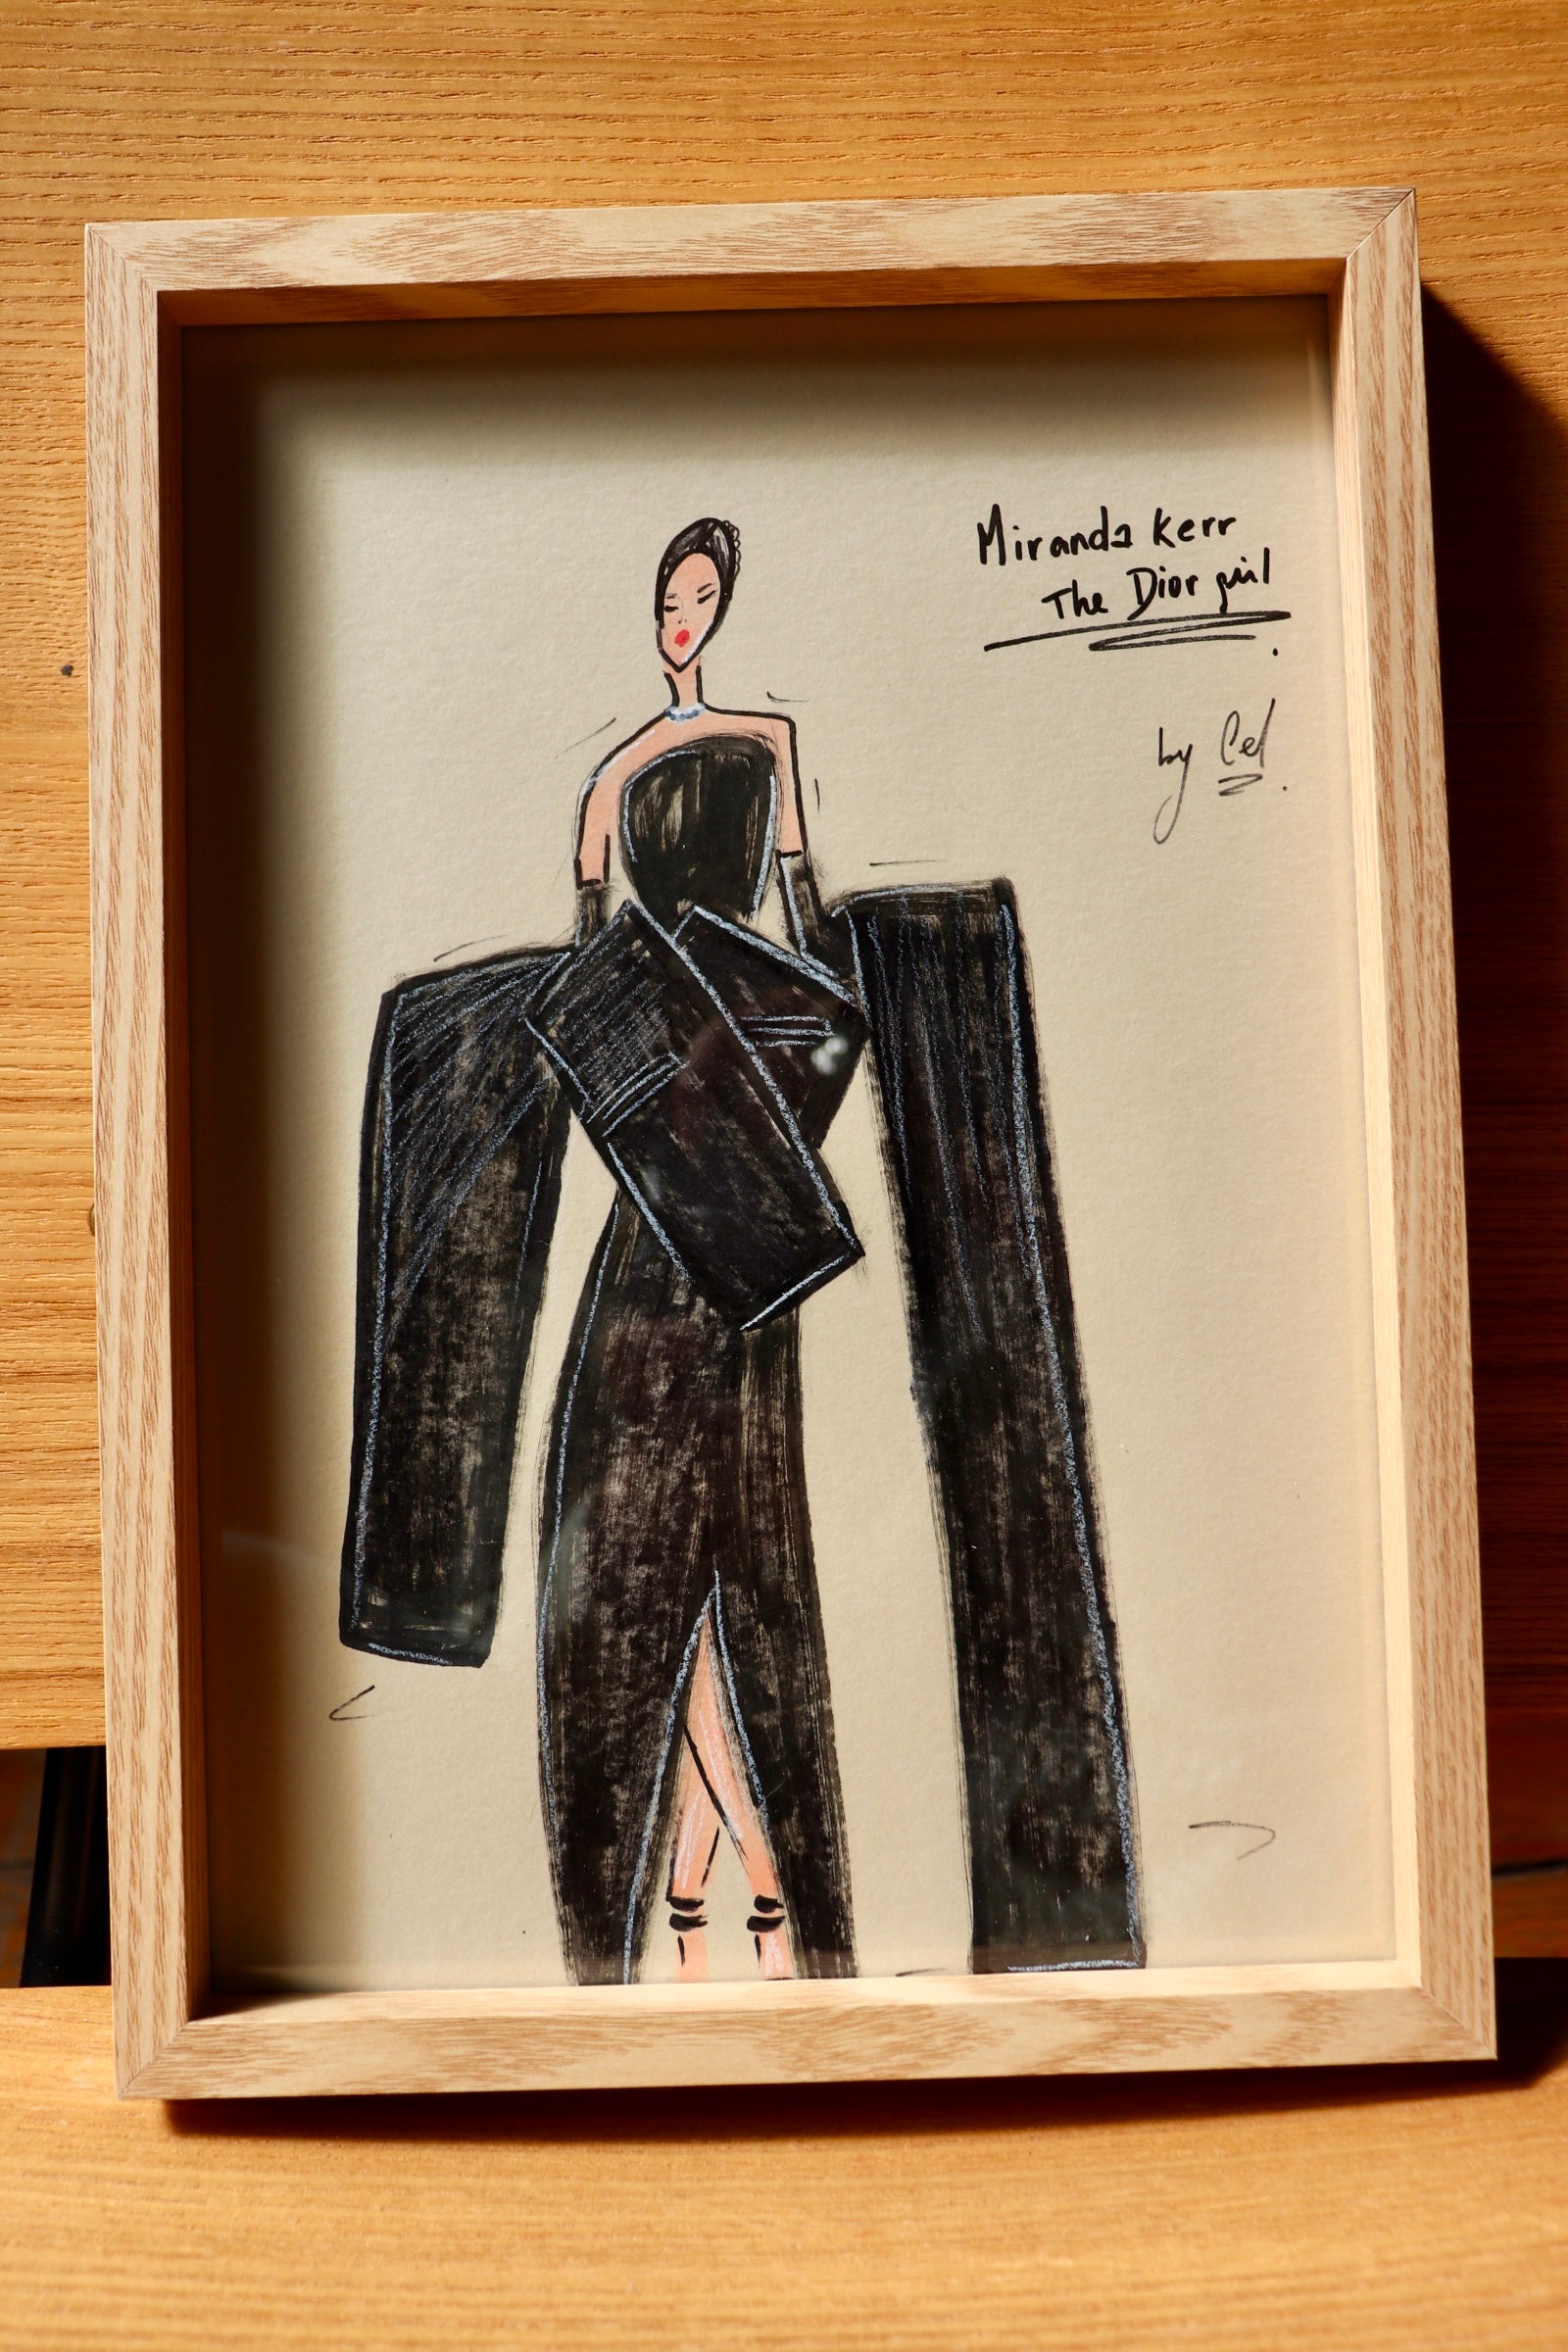 Miranda Kerr
The Dior girl
by Cel